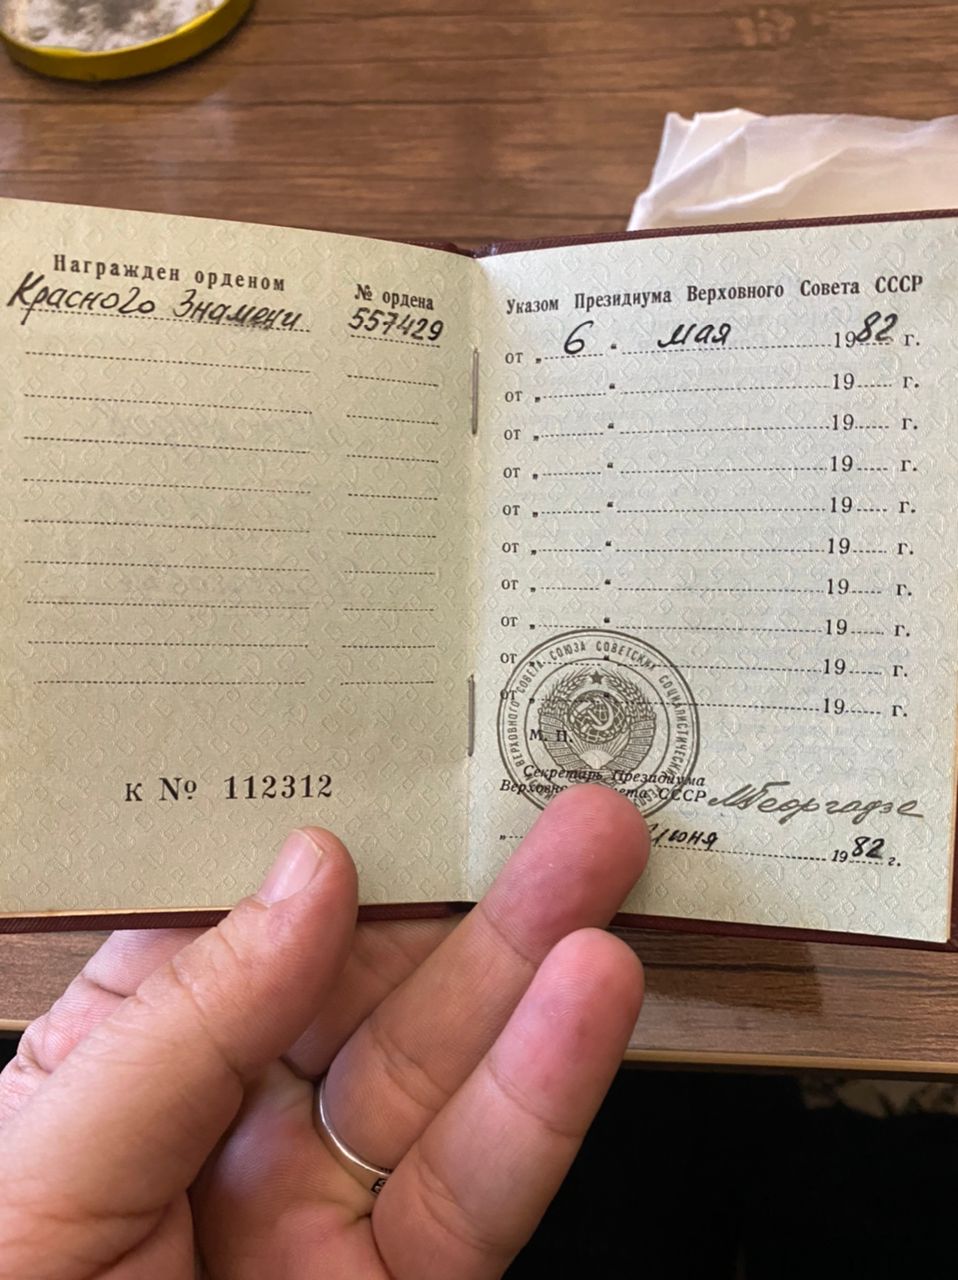 Награжден орденом
Красного Знамени
№ ордена
557429
К № 112312
Указом Президиума Верховного Совета СССР
от „ 6 “ мая 1982 г.
от „ “ 19 г.
от „ “ 19 г.
от „ “ 19 г.
от „ “ 19 г.
от „ “ 19 г.
от „ “ 19 г.
от „ “ 19 г.
от „ “ 19 г.
от „ “ 19 г.
ВЕРХОВНОГО СОВЕТА СОЮЗА СОВЕТСКИХ СОЦИАЛИСТИЧЕСКИХ
М. П.
Секретарь Президиума
Верховного Совета СССР МГеоргадзе
„ июня 1982 г.